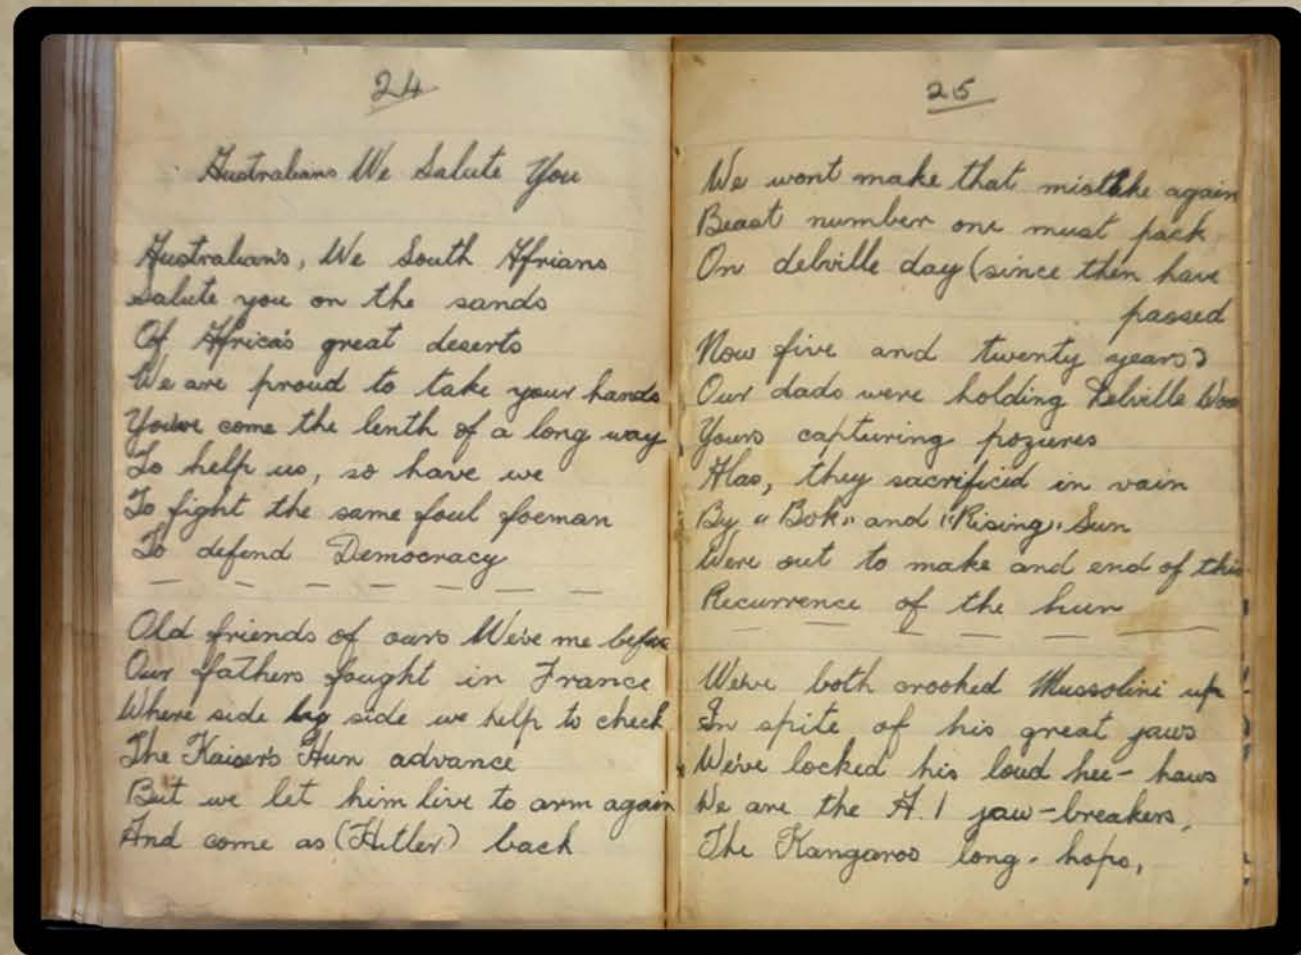 24
Australians We Salute You
Australian's, We South Afrians
Salute you on the sands
Of Africa's great deserts
We are proud to take your hands
You've come the lenth of a long way
To help us, so have we
To fight the same foul foeman
To defend Democracy
Old friends of ours We've me before
Our fathers fought in France
Where side by side we help to check
The Kaiser's Hun advance
But we let him live to arm again
And come as (Hitler) back
25
We wont make that mistake again
Beast number one must pack
On delville day (since then have
passed
Now five and twenty years)
Our dads were holding Delville
Yours capturing pozures
Alas, they sacrificid in vain
By "Bok" and "Rising" Sun
Were out to make and end of this
Recurrence of the hun
We've both crooked Mussolini up
In spite of his great jaws
We've locked his loud hee-haws
We are the A.1 jaw-breakers,
The Kangaroo long-hops,